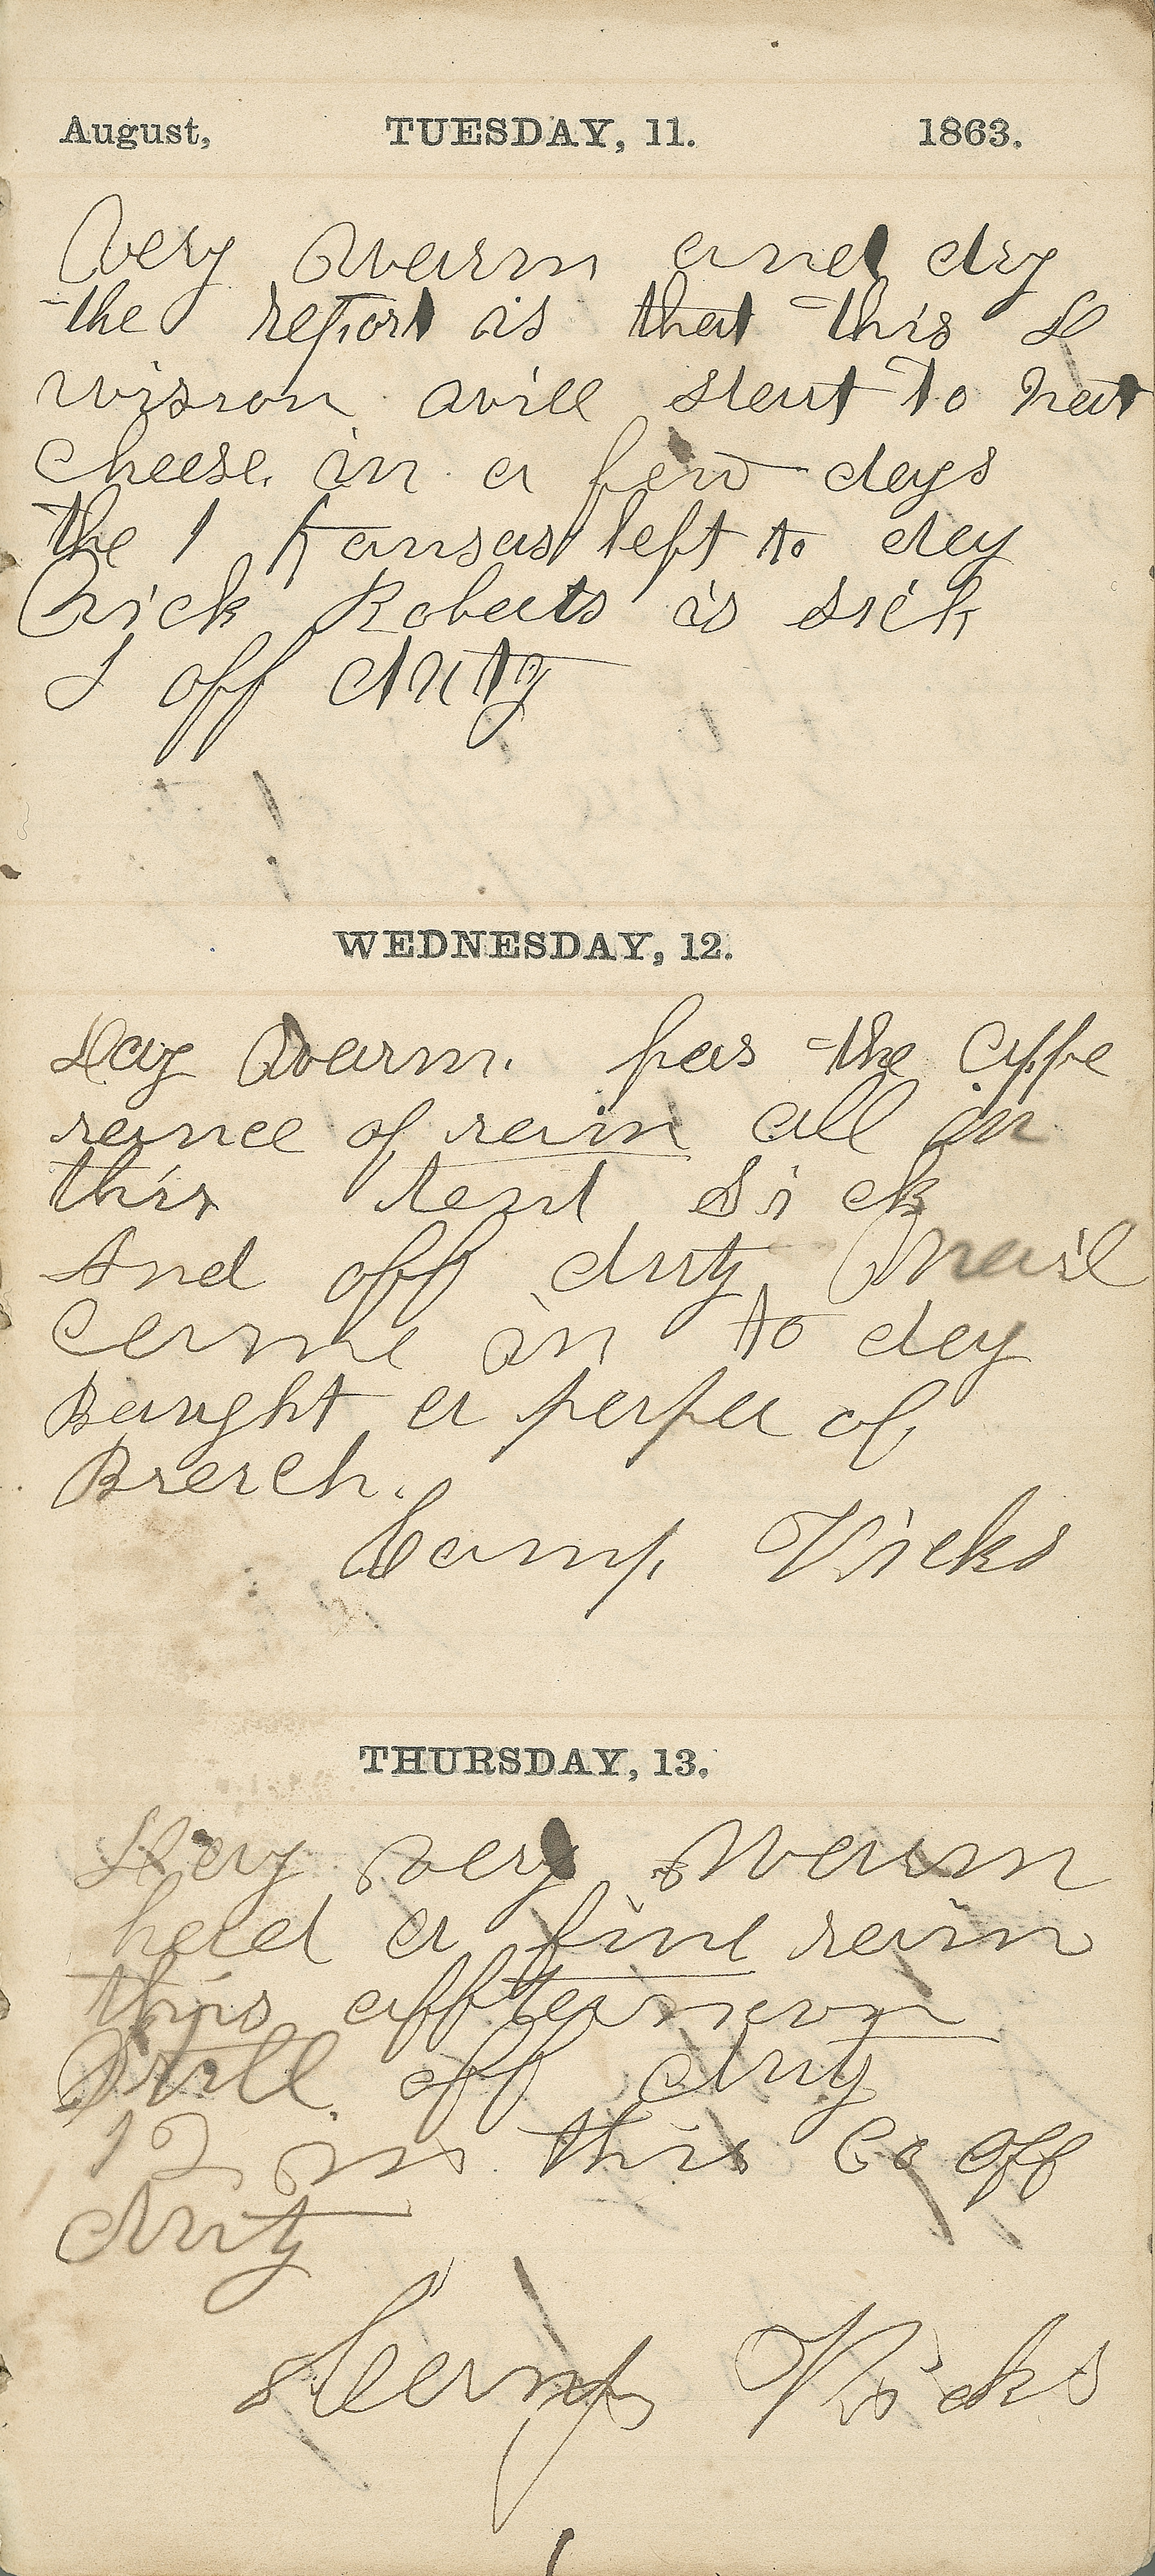 August, TUESDAY, 11. 1863.
Very Warm and dry
the report is that this D
vision will start to Nat
cheese. in a few days
the 1 Kansas left to day
Rick Roberts is sick
I off duty
WEDNESDAY, 12.
Day Warm. has the appe
rance of rain all in
this tent Sick
And off duty Mail
Came in to day
Baught a paper of
Camp Vicks
THURSDAY, 13.
Day very Warm
had a fine rain
this affternoon
Still off duty
12 in this Co off
duty
Camp Vicks